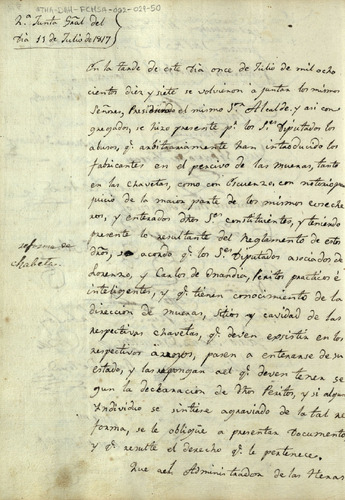 ATHA-DAH-FCMSA-002-029-50
R.ª Junta Gral del
Dia 11 de Julio de 1817
En la tarde de este dia once de Julio de mil ocho
cientos diez y siete se volvieron a juntar los mismos
Señores, Presidiendo el mismo Sr. Alcalde. y asi con
gregados, se hizo presente pr. los Ses. Diputados los
abusos, qe. arbitrariamente han introducido los
fabricantes en el percivo de las mueras, tanto
en las chavetas, como con notorio per
juicio de la maior parte de los mismos coseche
ros, y enterados dhos Ses. constituientes, y teniendo
presente lo resultante del Reglamento de estos
se acordó qe. los Ses. Diputados asociados de
Lorenzo, y Carlos de Onandia, Peritos practicos é
inteligentes, y qe. tienen conocimiento de la
direccion de mueras, sitios y cavidad de las
respectivas chavetas, qe. deven existir en los
respectivos arroyos, pasen a enterarse de su
estado, y las repongan al qe. deven tener se
gun la declaracion de dhos Peritos, y si algun
Yndividuo se sintiere agraviado de la tal re
forma, se le obligue a presentar Documento
y qe. resulte el derecho qe. le pertenece.
Que al Administrador de las
reforma de
chabeta.